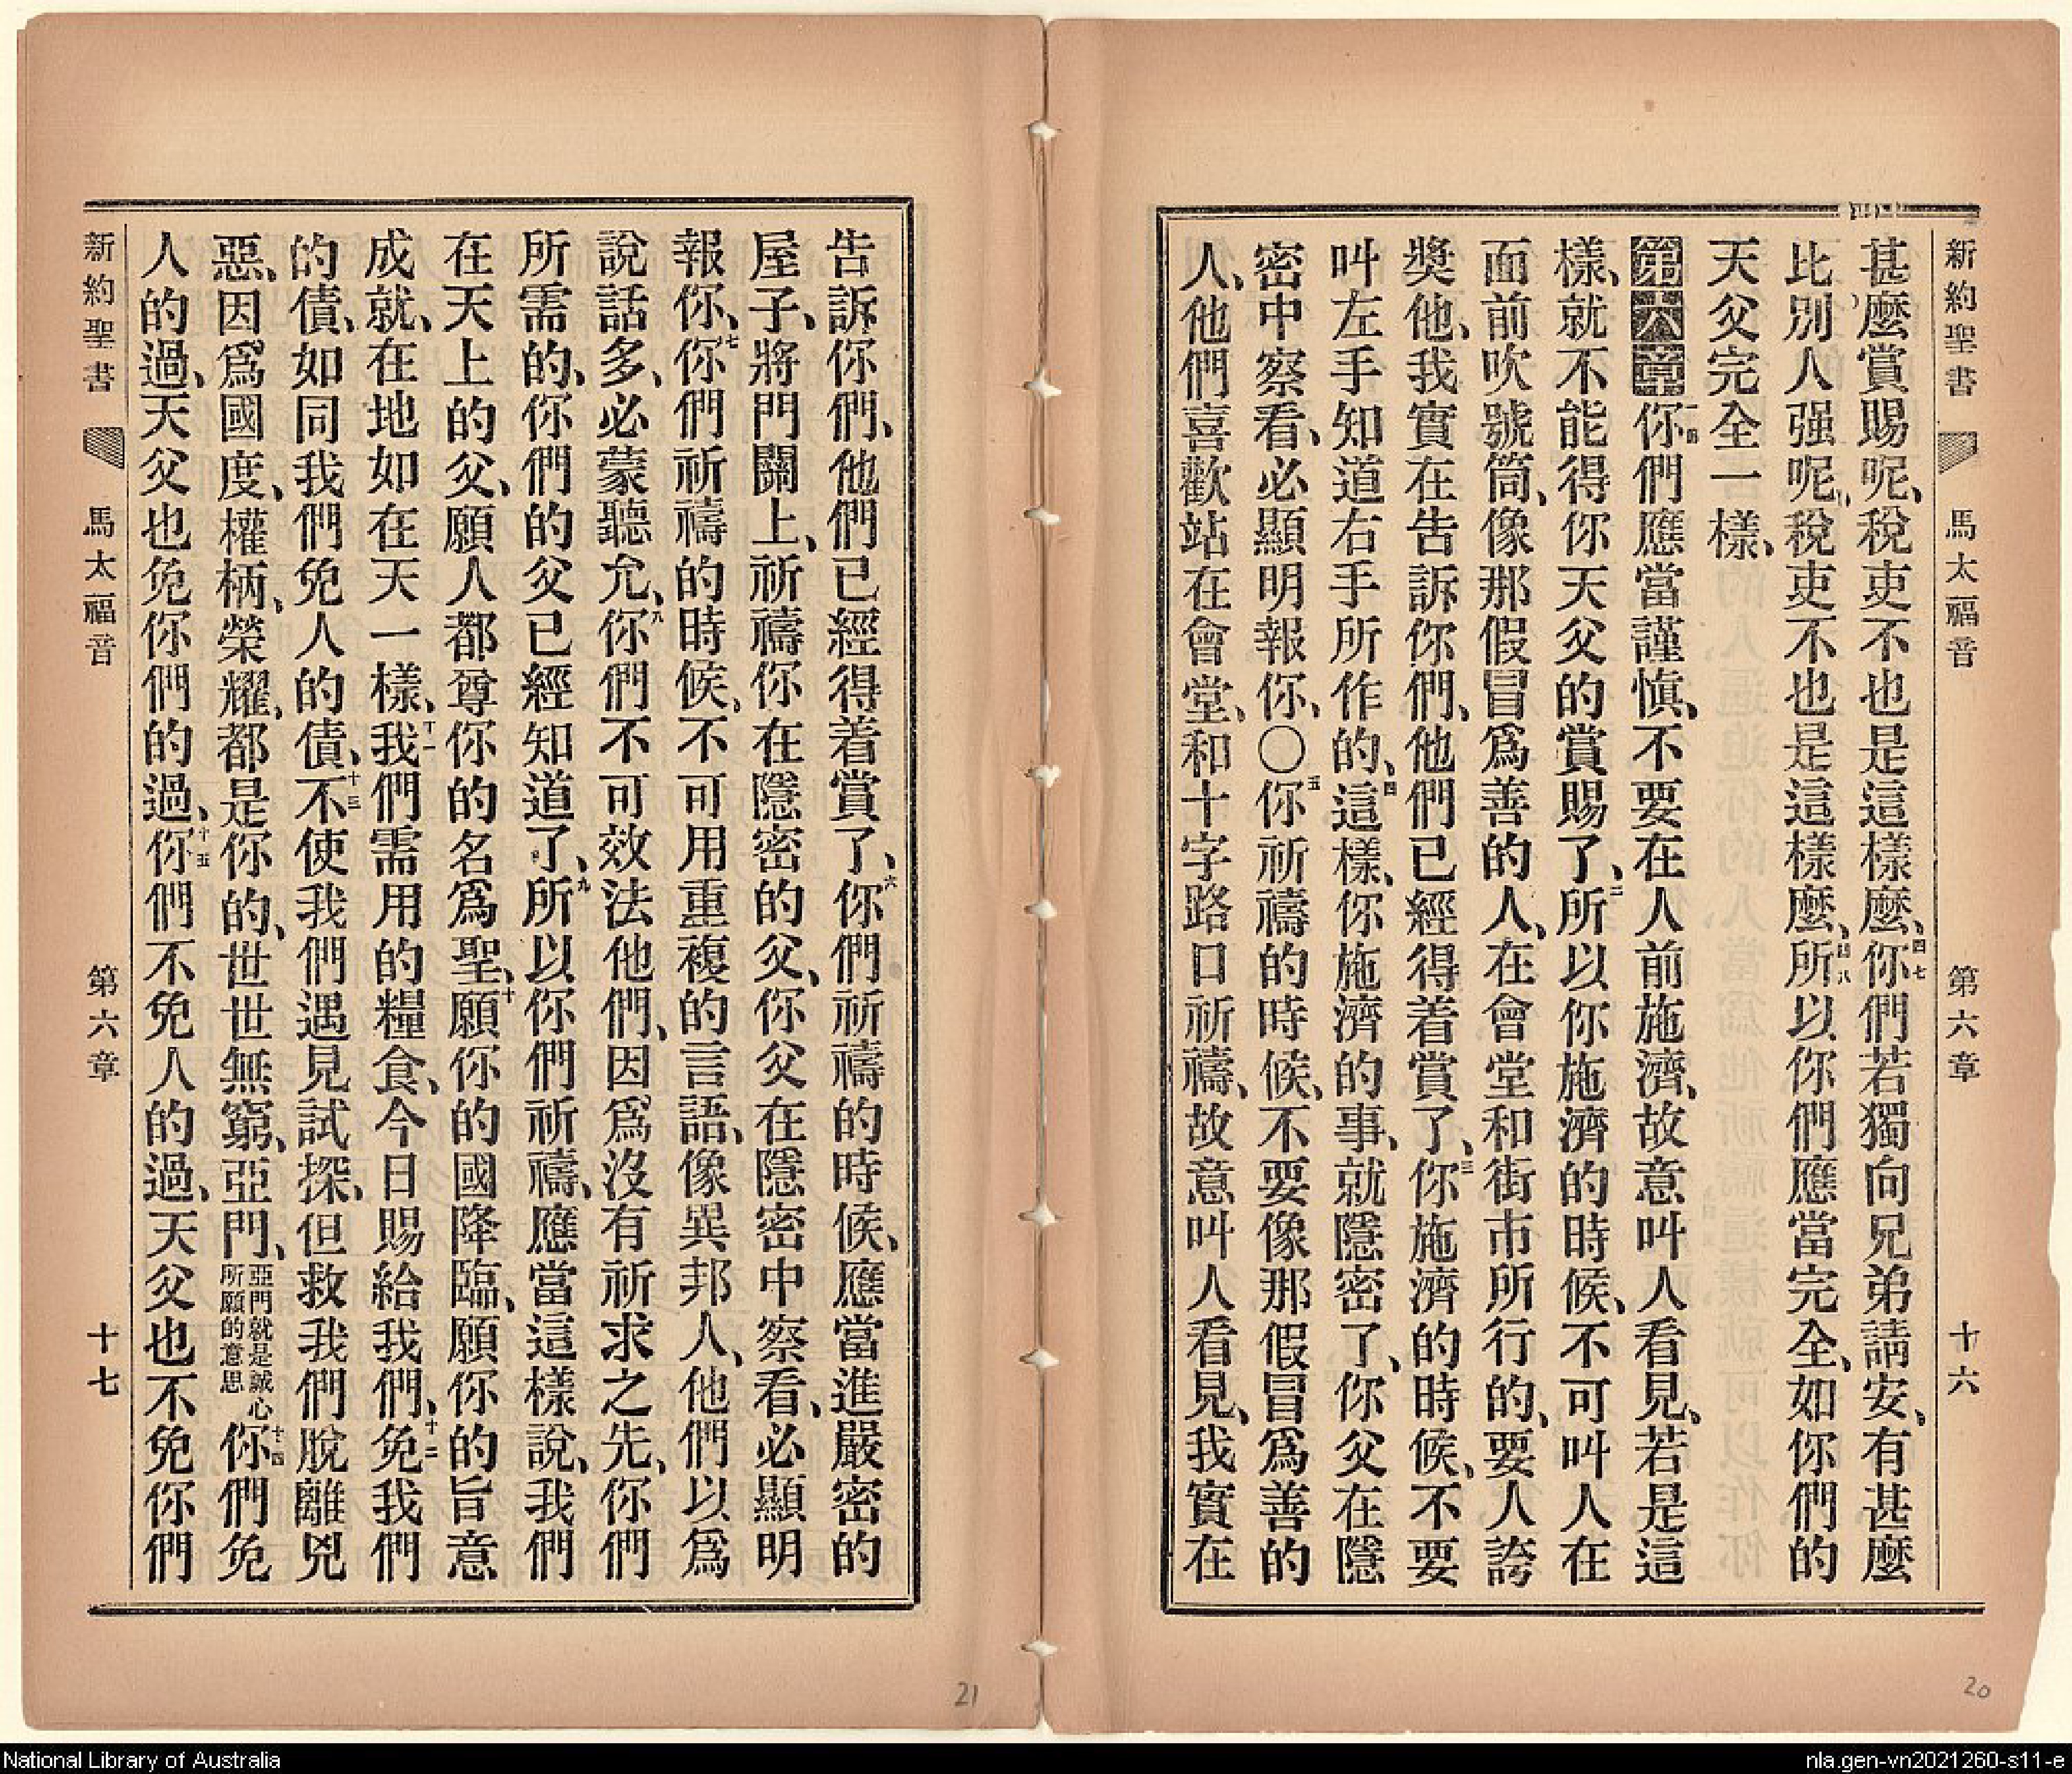 新約聖書 馬太福音 第六章 十六
甚麼賞賜呢、稅吏不也是這樣麼、四七你們若獨向兄弟請安、有甚麼
比別人强呢、稅吏不也是這樣麼、四八所以你們應當完全、如你們的
天父完全一樣、
第六章 一你們應當謹愼、不要在人前施濟、故意叫人看見、若是這
樣、就不能得你天父的賞賜了、二所以你施濟的時候、不可叫人在
面前吹號筒、像那假冒爲善的人、在會堂和街市所行的、要人誇
獎他、我實在告訴你們、他們已經得着賞了、三你施濟的時候、不要
叫左手知道右手所作的、四這樣、你施濟的事、就隱密了、你父在隱
密中察看、必顯明報你、〇五你祈禱的時候、不要像那假冒爲善的
人、他們喜歡站在會堂、和十字路口祈禱、故意叫人看見、我實在
告訴你們、他們已經得着賞了、六你們祈禱的時候、應當進嚴密的
屋子、將門關上、祈禱你在隱密的父、你父在隱密中察看、必顯明
報你、七你們祈禱的時候、不可用重複的言語、像異邦人、他們以爲
說話多、必蒙聽允、八你們不可效法他們、因爲沒有祈求之先、你們
所需的、你們的父已經知道了、九所以你們祈禱、應當這樣說、我們
在天上的父、願人都尊你的名爲聖、十願你的國降臨、願你的旨意
成就、在地如在天一樣、十一我們需用的糧食、今日賜給我們、十二免我們
的債、如同我們免人的債、十三不使我們遇見試探、但救我們脫離兇
惡、因爲國度、權柄、榮耀、都是你的、世世無窮、亞門、亞門就是誠心所願的意思 十四你們免
人的過、天父也免你們的過、十五你們不免人的過、天父也不免你們
新約聖書 馬太福音 第六章 十七
21
20
National Library of Australia
nla.gen-vn2021260-s11-e